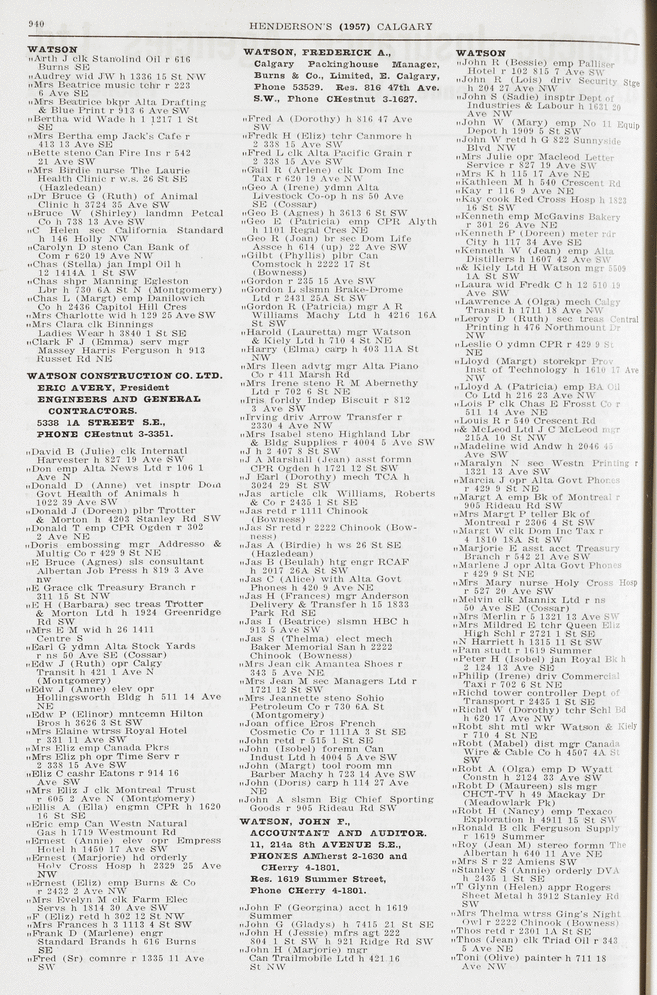 940
HENDERSON'S (1957) CALGARY
WATSON
„Arth J clk Stanolind Oil r 616
Burns SE
„Audrey wid JW h 1336 15 St NW
„Mrs Beatrice music tchr r 223
6 Ave SE
„Mrs Beatrice bkpr Alta Drafting
& Blue Print r 913 6 Ave SW
„Bertha wid Wade h 1 1217 1 St
SE
„Mrs Bertha emp Jack's Cafe r
413 13 Ave SE
„Bette steno Can Fire Ins r 542
21 Ave SW
„Mrs Birdie nurse The Laurie
Health Clinic r w.s. 26 St SE
(Hazledean)
„Dr Bruce G (Ruth) of Animal
Clinic h 3724 35 Ave SW
„Bruce W (Shirley) landmn Petcal
Co h 738 13 Ave SW
„C Helen sec California Standard
h 146 Holly NW
„Carolyn D steno Can Bank of
Com r 620 19 Ave NW
„Chas (Stella) jan Impl Oil h
12 1414A 1 St SW
„Chas shpr Manning Egleston
Lbr h 730 6A St N (Montgomery)
„Chas L (Margt) emp Danilowich
Co h 2436 Capitol Hill Cres
„Mrs Charlotte wid h 129 25 Ave SW
„Mrs Clara clk Binnings
Ladies Wear h 3840 1 St SE
„Clark F J (Emma) serv mgr
Massey Harris Ferguson h 913
Russet Rd NE
WATSON CONSTRUCTION CO. LTD.
ERIC AVERY, President
ENGINEERS AND GENERAL
CONTRACTORS.
5338 1A STREET S.E.,
PHONE CHestnut 3-3351.
„David B (Julie) clk Internatl
Harvester h 827 19 Ave SW
„Don emp Alta News Ltd r 106 1
Ave N
„Donald D (Anne) vet insptr Dom
Govt Health of Animals h
1022 39 Ave SW
„Donald J (Doreen) plbr Trotter
& Morton h 4203 Stanley Rd SW
„Donald T emp CPR Ogden r 302
2 Ave NE
„Doris embossing mgr Addresso &
Multig Co r 429 9 St NE
„E Bruce (Agnes) sls consultant
Albertan Job Press h 819 3 Ave
nw
„E Grace clk Treasury Branch r
311 15 St NW
„E H (Barbara) sec treas Trotter
& Morton Ltd h 1924 Greenridge
Rd SW
„Mrs E M wid h 26 1411
Centre S
„Earl G ydmn Alta Stock Yards
r ns 50 Ave SE (Cossar)
„Edw J (Ruth) opr Calgy
Transit h 421 1 Ave N
(Montgomery)
„Edw J (Anne) elev opr
Hollingsworth Bldg h 511 14 Ave
NE
„Edw P (Elinor) mntcemn Hilton
Bros h 3626 3 St SW
„Mrs Elaine wtrss Royal Hotel
r 331 11 Ave SW
„Mrs Eliz emp Canada Pkrs
„Mrs Eliz ph opr Time Serv r
2 338 15 Ave SW
„Eliz C cashr Eatons r 914 16
Ave SW
„Mrs Eliz J clk Montreal Trust
r 605 2 Ave N (Montgomery)
„Ellis A (Ella) engmn CPR h 1620
16 St SE
„Eric emp Can Westn Natural
Gas h 1719 Westmount Rd
„Ernest (Annie) elev opr Empress
Hotel h 1450 17 Ave SW
„Ernest (Marjorie) hd orderly
Holy Cross Hosp h 2329 25 Ave
NW
„Ernest (Eliz) emp Burns & Co
r 2432 2 Ave NW
„Mrs Evelyn M clk Farm Elec
Servs h 1814 30 Ave SW
„F (Eliz) retd h 302 12 St NW
„Mrs Frances h 3 1113 4 St SW
„Frank D (Marlene) engr
Standard Brands h 616 Burns
SE
„Fred (Sr) comnre r 1335 11 Ave
SW
WATSON, FREDERICK A.,
Calgary Packinghouse Manager,
Burns & Co., Limited, E. Calgary,
Phone 53539. Res. 816 47th Ave.
S.W., Phone CHestnut 3-1627.
„Fred A (Dorothy) h 816 47 Ave
SW
„Fredk H (Eliz) tchr Canmore h
2 338 15 Ave SW
„Fred L clk Alta Pacific Grain r
2 338 15 Ave SW
„Gail R (Arlene) clk Dom Inc
Tax r 620 19 Ave NW
„Geo A (Irene) ydmn Alta
Livestock Co-op h ns 50 Ave
SE (Cossar)
„Geo B (Agnes) h 3613 6 St SW
„Geo E (Patricia) emp CPR Alyth
h 1101 Regal Cres NE
„Geo R (Joan) br sec Dom Life
Assce h 614 (up) 22 Ave SW
„Gilbt (Phyllis) plbr Can
Comstock h 2222 17 St
(Bowness)
„Gordon r 235 15 Ave SW
„Gordon L slsmn Brake-Drome
Ltd r 2431 25A St SW
„Gordon R (Patricia) mgr A R
Williams Machy Ltd h 4216 16A
St SW
„Harold (Lauretta) mgr Watson
& Kiely Ltd h 710 4 St NE
„Harry (Elma) carp h 403 11A St
NW
„Mrs Ileen advtg mgr Alta Piano
Co r 411 Marsh Rd
„Mrs Irene steno R M Abernethy
Ltd r 702 6 St NE
„Iris forldy Indep Biscuit r 812
3 Ave SW
„Irving driv Arrow Transfer r
2330 4 Ave NW
„Mrs Isabel steno Highland Lbr
& Bldg Supplies r 4004 5 Ave SW
„J h 2 407 8 St SW
„J A Marshall (Jean) asst formn
CPR Ogden h 1721 12 St SW
„J Earl (Dorothy) mech TCA h
3024 29 St SW
„Jas article clk Williams, Roberts
& Co r 2435 1 St SE
„Jas retd r 1111 Chinook
(Bowness)
„Jas Sr retd r 2222 Chinook (Bow-
ness)
„Jas A (Birdie) h ws 26 St SE
(Hazledean)
„Jas B (Beulah) htg engr RCAF
h 2017 26A St SW
„Jas C (Alice) with Alta Govt
Phones h 420 9 Ave NE
„Jas H (Frances) mgr Anderson
Delivery & Transfer h 15 1833
Park Rd SE
„Jas I (Beatrice) slsmn HBC h
913 5 Ave SW
„Jas S (Thelma) elect mech
Baker Memorial San h 2222
Chinook (Bowness)
„Mrs Jean clk Amantea Shoes r
343 5 Ave NE
„Mrs Jean M sec Managers Ltd r
1721 12 St SW
„Mrs Jeannette steno Sohio
Petroleum Co r 730 6A St
(Montgomery)
„Joan office Eros French
Cosmetic Co r 1111A 3 St SE
„John retd r 515 1 St SE
„John (Isobel) foremn Can
Indust Ltd h 4004 5 Ave SW
„John (Margt) tool room mn
Barber Machy h 723 14 Ave SW
„John (Doris) carp h 114 27 Ave
NE
„John A slsmn Big Chief Sporting
Goods r 905 Rideau Rd SW
WATSON, JOHN F.,
ACCOUNTANT AND AUDITOR.
11, 214a 8th AVENUE S.E.,
PHONES AMherst 2-1630 and
CHerry 4-1801.
Res. 1619 Summer Street,
Phone CHerry 4-1801.
„John F (Georgina) acct h 1619
Summer
„John G (Gladys) h 7415 21 St SE
„John H (Jessie) mfrs agt 222
804 1 St SW h 921 Ridge Rd SW
„John H (Marjorie) mgr
Can Trailmobile Ltd h 421 16
St NW
WATSON
„John R (Bessie) emp Palliser
Hotel r 102 815 7 Ave SW
„John R (Lois) driv Security Stge
h 204 27 Ave NW
„John S (Sadie) insptr Dept of
Industries & Labour h 1631 20
Ave NW
„John W (Mary) emp No 11 Equip
Depot h 1909 5 St SW
„John W retd h G 822 Sunnyside
Blvd NW
„Mrs Julie opr Macleod Letter
Service r 827 19 Ave SW
„Mrs K h 115 17 Ave NE
„Kathleen M h 540 Crescent Rd
„Kay r 116 9 Ave NE
„Kay cook Red Cross Hosp h 1823
16 St SW
„Kenneth emp McGavins Bakery
r 301 26 Ave NE
„Kenneth P (Doreen) meter rdr
City h 117 34 Ave SE
„Kenneth W (Jean) emp Alta
Distillers h 1607 42 Ave SW
„& Kiely Ltd H Watson mgr 5509
1A St SW
„Laura wid Fredk C h 12 510 19
Ave SW
„Lawrence A (Olga) mech Calgy
Transit h 1711 18 Ave NW
„Leroy D (Ruth) sec treas Central
Printing h 476 Northmount Dr
NW
„Leslie O ydmn CPR r 429 9 St
NE
„Lloyd (Margt) storekpr Prov
Inst of Technology h 1610 17 Ave
NW
„Lloyd A (Patricia) emp BA Oil
Co Ltd h 216 23 Ave NW
„Lois P clk Chas E Frosst Co r
511 14 Ave NE
„Louis R r 540 Crescent Rd
„& McLeod Ltd J C McLeod mgr
215A 10 St NW
„Madeline wid Andw h 2046 45
Ave SW
„Maralyn N sec Westn Printing r
1321 13 Ave SW
„Marcia J opr Alta Govt Phones
r 429 9 St NE
„Margt A emp Bk of Montreal r
905 Rideau Rd SW
„Mrs Margt P teller Bk of
Montreal r 2306 4 St SW
„Margt W clk Dom Inc Tax r
4 1810 18A St SW
„Marjorie E asst acct Treasury
Branch r 542 21 Ave SW
„Marlene J opr Alta Govt Phones
r 429 9 St NE
„Mrs Mary nurse Holy Cross Hosp
r 527 20 Ave SW
„Melvin clk Mannix Ltd r ns
50 Ave SE (Cossar)
„Mrs Merlin r 5 1321 13 Ave SW
„Mrs Mildred E tchr Queen Eliz
High Schl r 2721 1 St SE
„N Harriett h 1315 11 St SW
„Pam studt r 1619 Summer
„Peter H (Isobel) jan Royal Bk h
2 124 13 Ave SE
„Philip (Irene) driv Commercial
Taxi r 702 6 St NE
„Richd tower controller Dept of
Transport r 2435 1 St SE
„Richd W (Dorothy) tchr Schl Bd
h 620 17 Ave NW
„Robt sht mtl wkr Watson & Kiely
r 710 4 St NE
„Robt (Mabel) dist mgr Canada
Wire & Cable Co h 4507 4A St
SW
„Robt A (Olga) emp D Wyatt
Constn h 2124 33 Ave SW
„Robt D (Maureen) sls mgr
CHCT-TV h 49 Mackay Dr
(Meadowlark Pk)
„Robt H (Nancy) emp Texaco
Exploration h 4911 15 St SW
„Ronald B clk Ferguson Supply
r 1619 Summer
„Roy (Jean M) stereo formn The
Albertan h 640 11 Ave NE
„Mrs S r 22 Amiens SW
„Stanley S (Annie) orderly DVA
h 2435 1 St SE
„T Glynn (Helen) appr Rogers
Sheet Metal h 3912 Stanley Rd
SW
„Mrs Thelma wtrss Ging's Night
Owl r 2222 Chinook (Bowness)
„Thos retd r 2301 1A St SE
„Thos (Jean) clk Triad Oil r 343
5 Ave NE
„Toni (Olive) painter h 711 18
Ave NW